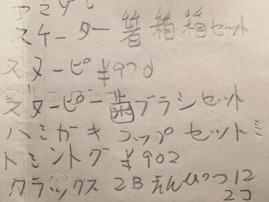 アマゾ
スケーター 箸箱箱セット
スヌーピ ¥970
スヌーピー歯ブラシセット
ハミガキ コップ セット ミ
トミング ¥902
クラックス 2B えんぴつ 12
2コ